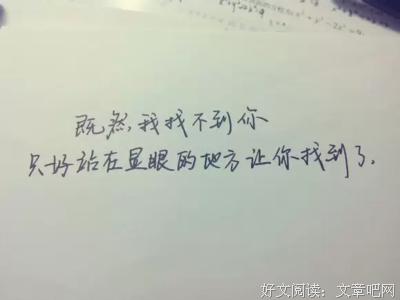 既然,我找不到你
只好站在显眼的地方让你找到了.
好文阅读：文章吧网